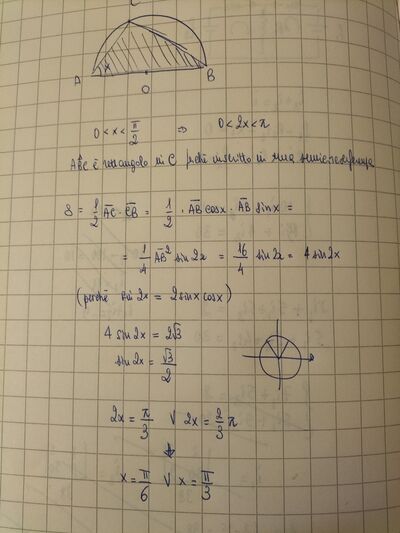 C
A x O B
0 < x < π/2 ⇒ 0 < 2x < π
ABC è rettangolo in C perché inscritto in una semicirconferenza
S = 1/2 AC · CB = 1/2 · AB cosx · AB sinx =
= 1/4 AB² sin 2x = 16/4 sin 2x = 4 sin 2x
(perché sin 2x = 2 sinx cosx)
4 sin 2x = 2√3
sin 2x = √3/2
2x = π/3 ∨ 2x = 2/3 π
↓
x = π/6 ∨ x = π/3